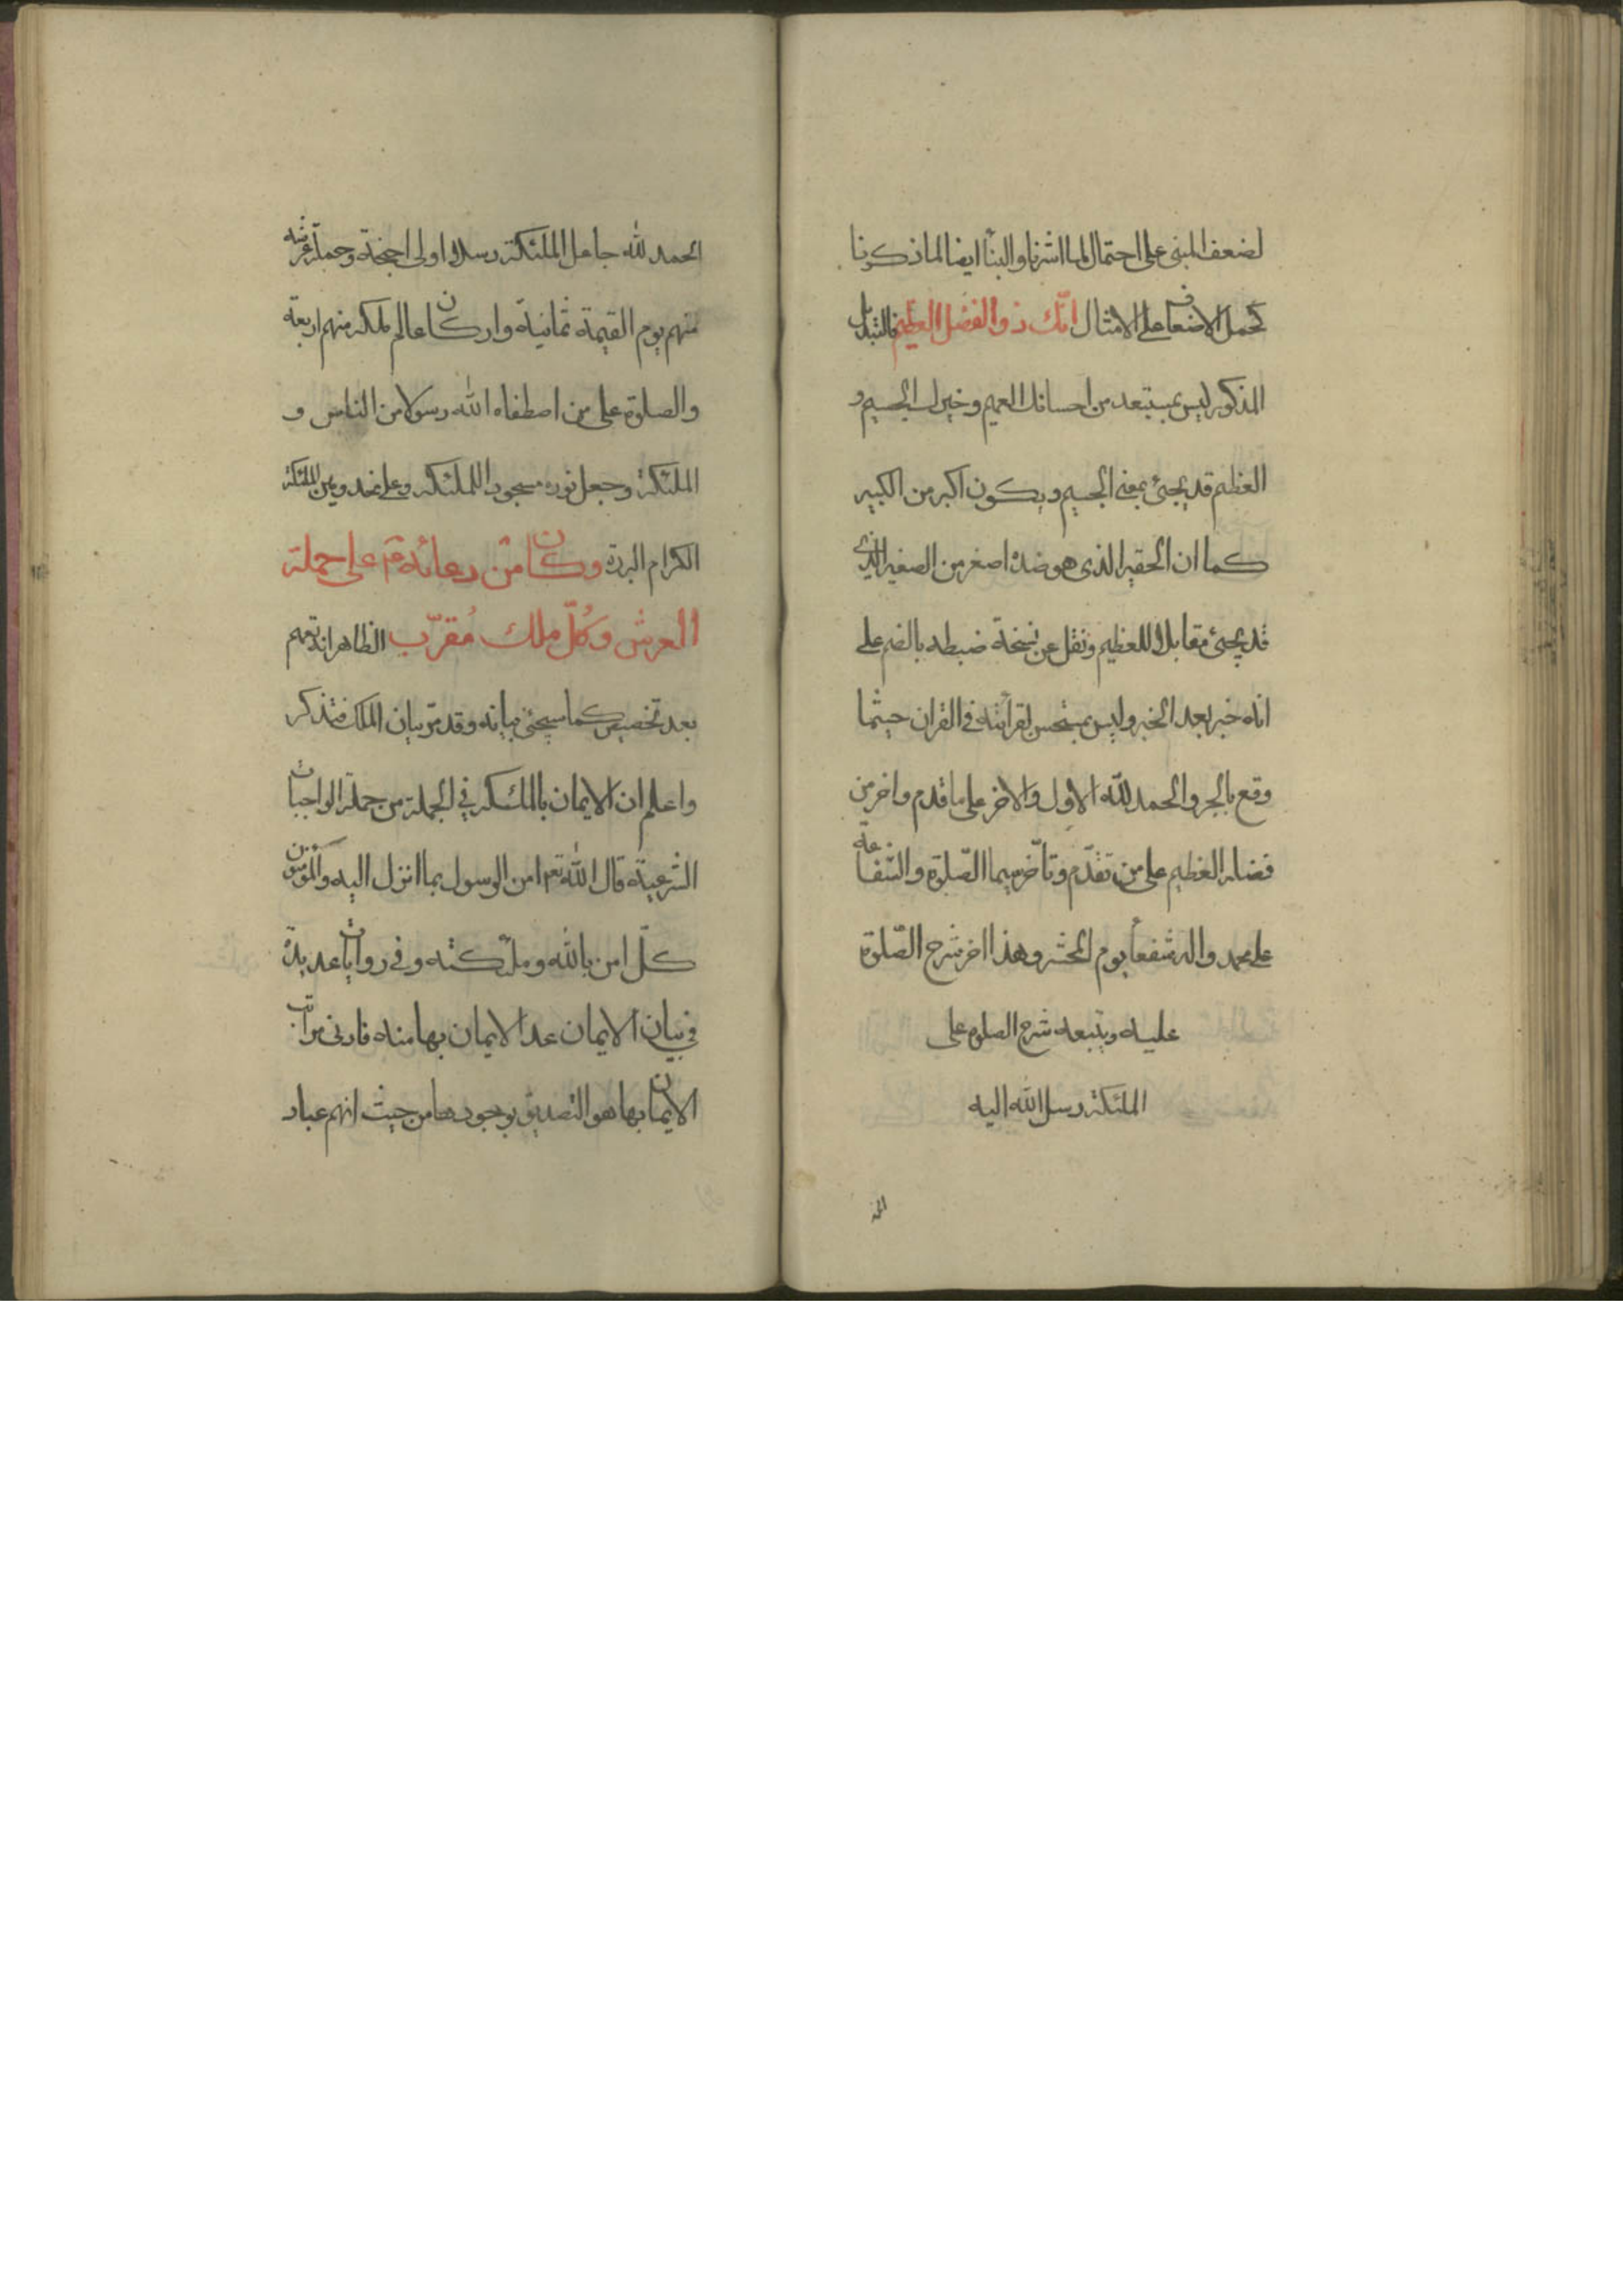 لضعف المبنى على احتمال لما اشرنا والبنآ ايضا لما ذكرنا
كحمل الاضعاف على الامثال انّك ذو الفضل العظيم فالتبديل
المذكور ليس بمستبعد من احسانك العميم وخيرك الجسيم و
العظيم قد يجئ بمعنى الجسيم ويكون اكبر من الكبير
كما ان الحقير الذى هو ضده اصغر من الصغير الذى
قد يجئ مقابلا للعظيم ونقل عن نسخة ضبطه بالضم على
انه خبر بعد الخبر وليس بمستحسن لقرائته فى القران حيثما
وقع بالجر والحمد للّه الاول والاخر على ما قدم واخر من
فضله العظيم على من تقدّم وتأخّر سيما الصّلوة والشفاعة
على محمد واله مشفعاً يوم المحشر وهذا اخر شرح الصّلوة
عليه ويتبعه شرح الصلوة على
الملئكة رسل اللّه اليه
الحمد
الحمد للّه جاعل الملئكة رسلا اولى اجنحة وحملة عرشه
منهم يوم القيمة ثمانية واركان عالم ملكه منهم اربعة
والصلوة على من اصطفاه اللّه رسولا من الناس و
الملئكة وجعل نوره مسجود الملئكة وعلى
الكرام البررة وكان من دعائه ع م على حملة
العرش وكُلّ ملك مُقرّب الظاهر انه تعميم
بعد تخصيص كما سيجئ بيانه وقد مرّ بيان الملك فتذكر
واعلم ان الايمان بالملئكة فى الجملة من جملة الواجبات
الشرعية قال اللّه تعم امن الرسول بما انزل اليه والمؤمنون
كلّ امن باللّه وملئكته وفى روايات عديدة
فى بيان الايمان عد الايمان بها منه فادنى مراتب
الايمان بها هو التصديق بوجودها من حيث انهم عباد